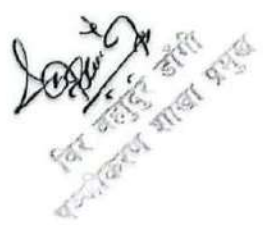 विर बहादुर डाँगी
पञ्जीकरण शाखा प्रमुख